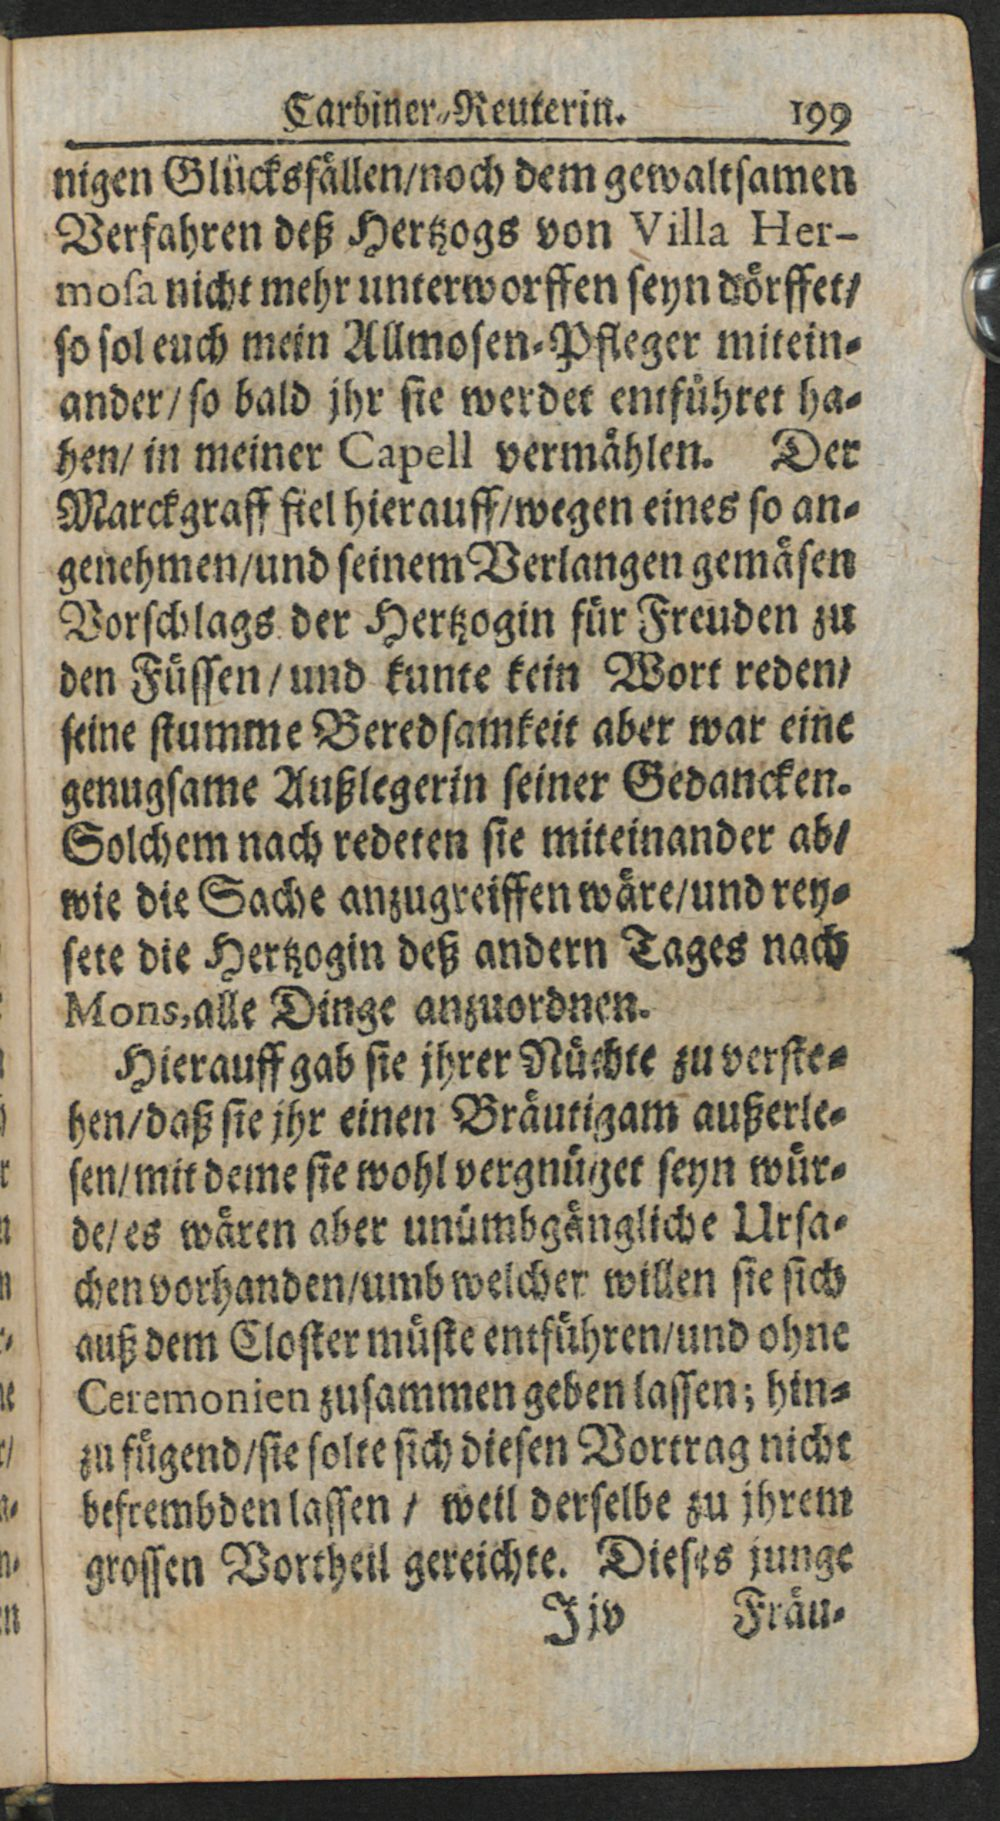 Carbiner-Reuterin. 199
nigen Glücksfällen/noch dem gewaltsamen
Verfahren deß Hertzogs von Villa Her-
mosa nicht mehr unterworffen seyn dörffet/
so sol euch mein Allmosen-Pfleger mitein-
ander/ so bald jhr sie werdet entführet ha-
hen/ in meiner Capell vermählen. Der
Marckgraff fiel hierauff/wegen eines so an-
genehmen/und seinem Verlangen gemäsen
Vorschlags der Hertzogin für Freuden zu
den Füssen/ und kunte kein Wort reden/
seine stumme Beredsamkeit aber war eine
genugsame Außlegerin seiner Gedancken.
Solchem nach redeten sie miteinander ab/
wie die Sache anzugreiffen wäre/und rey-
sete die Hertzogin deß andern Tages nach
Mons, alle Dinge anzuordnen.
Hierauff gab sie jhrer Nüchte zu verste-
hen/daß sie jhr einen Bräutigam außerle-
sen/mit deme sie wohl vergnüget seyn wür-
de/es wären aber unümbgängliche Ursa-
chen vorhanden/umb welcher willen sie sich
auß dem Closter müste entführen/und ohne
Ceremonien zusammen geben lassen; hin-
zu fügend/sie solte sich diesen Vortrag nicht
befrembden lassen / weil derselbe zu jhrem
grossen Vortheil gereichte. Dieses junge
Jjv Fräu-